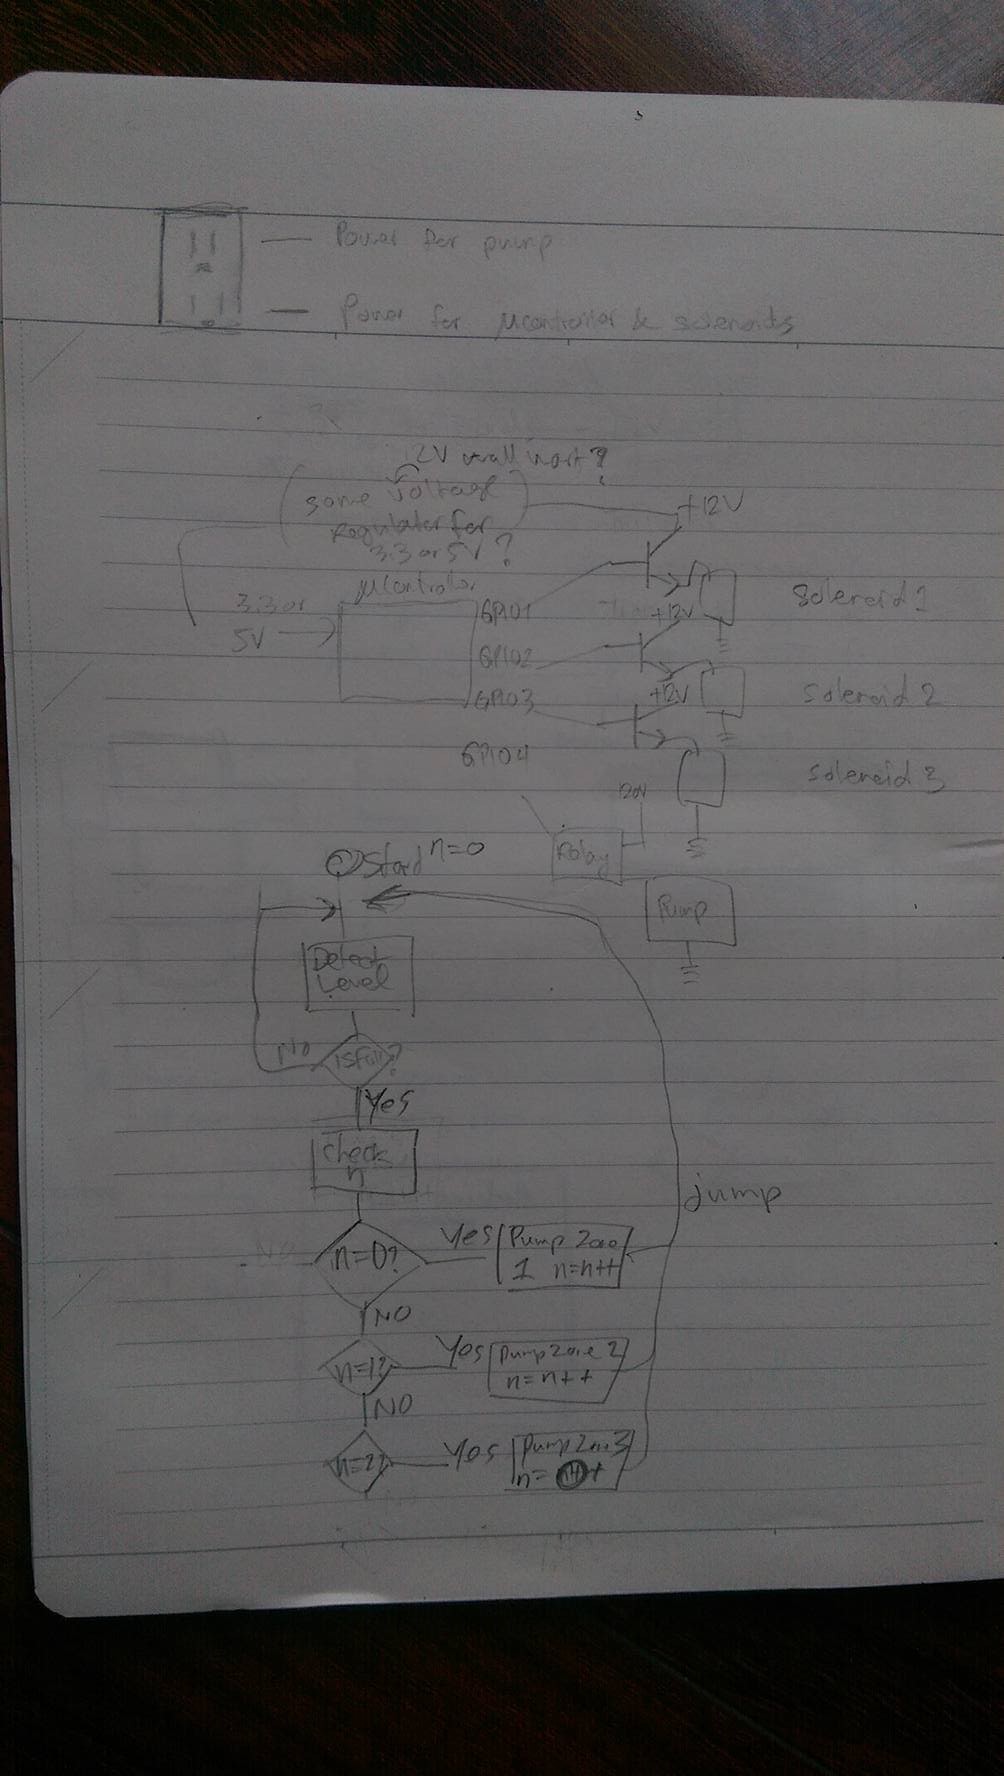 Power for pump
Power for μcontroller & solenoids
12V wall wart?
some voltage
regulator for
3.3 or 5V?
+12V
μController
3.3 or
5V
GPIO1
GPIO2
GPIO3
GPIO4
+12V
+12V
Solenoid 1
Solenoid 2
Solenoid 3
120V
Relay
Pump
Start n=0
Detect
Level
is full?
No
Yes
Check
n
jump
n=0?
Yes
Pump Zone
1 n=n++
NO
n=1?
Yes
Pump Zone 2
n=n++
NO
n=2?
Yes
Pump Zone 3
n=